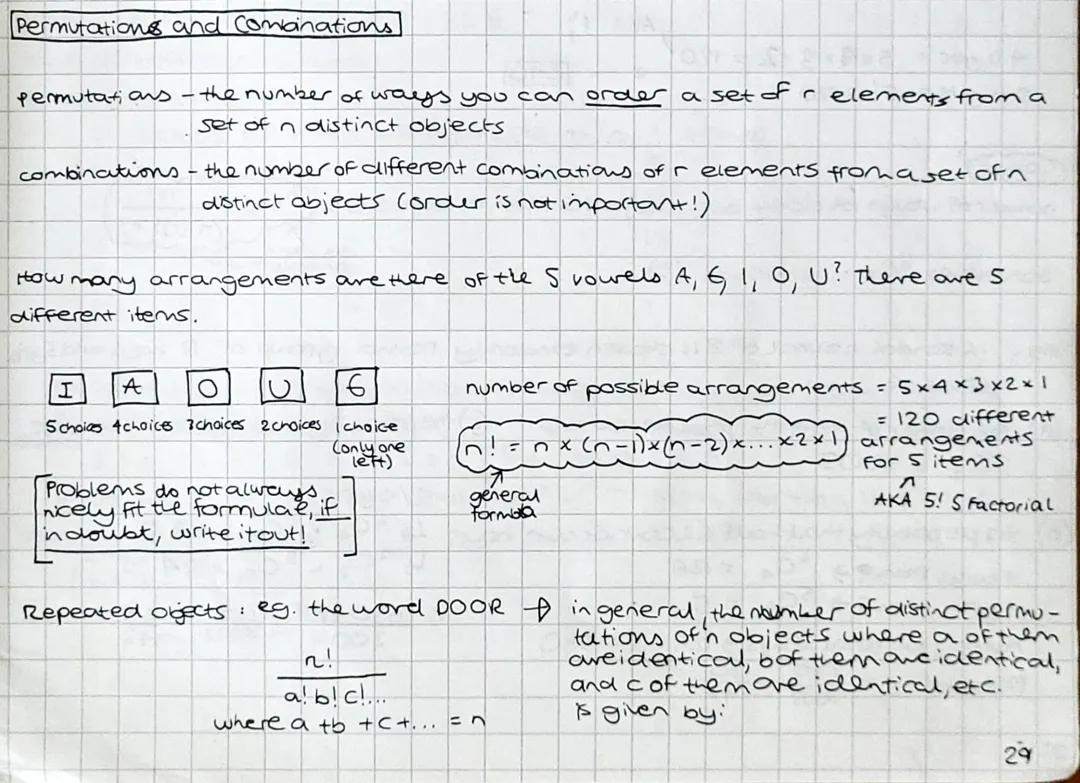 Permutations and Combinations
permutations - the number of ways you can order a set of r elements from a
set of n distinct objects
combinations - the number of different combinations of r elements from a set of n
distinct objects (order is not important!)
How many arrangements are there of the 5 vowels A, E, I, O, U? There are 5
different items.
I A O U E
5 choices 4 choices 3 choices 2 choices 1 choice
(only one
left)
number of possible arrangements = 5×4×3×2×1
= 120 different
arrangements
for 5 items
AKA 5! 5 Factorial
n! = n × (n-1)×(n-2)×...×2×1
general
formula
Problems do not always
nicely fit the formulae, if
in doubt, write it out!
Repeated objects: eg. the word DOOR → in general, the number of distinct permu-
tations of n objects where a of them
are identical, b of them are identical,
and c of them are identical, etc.
is given by:
n!
a! b! c!...
where a + b + c + ... = n
29